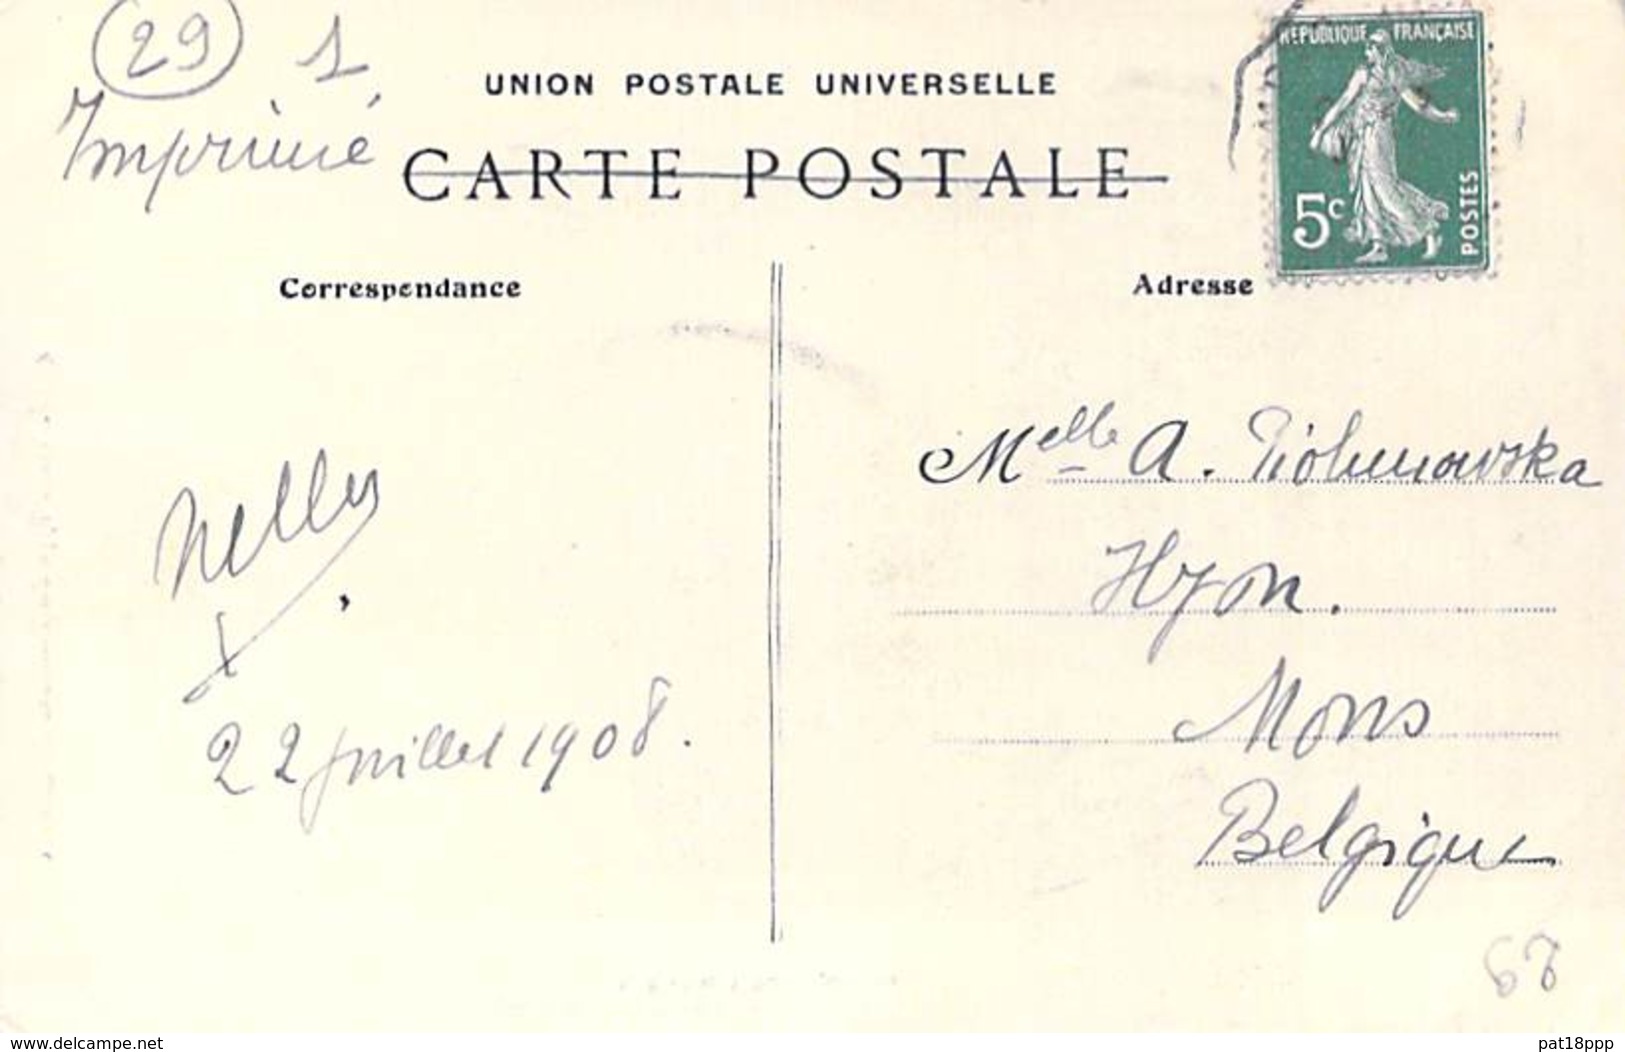 29 1
Imprimé
UNION POSTALE UNIVERSELLE
CARTE POSTALE
RÉPUBLIQUE FRANÇAISE
5c
POSTES
Correspondance
Adresse
Nelly
22 juillet 1908.
Melle A.
Hyon.
Mons
Belgique
www.delcampe.net
pat18ppp